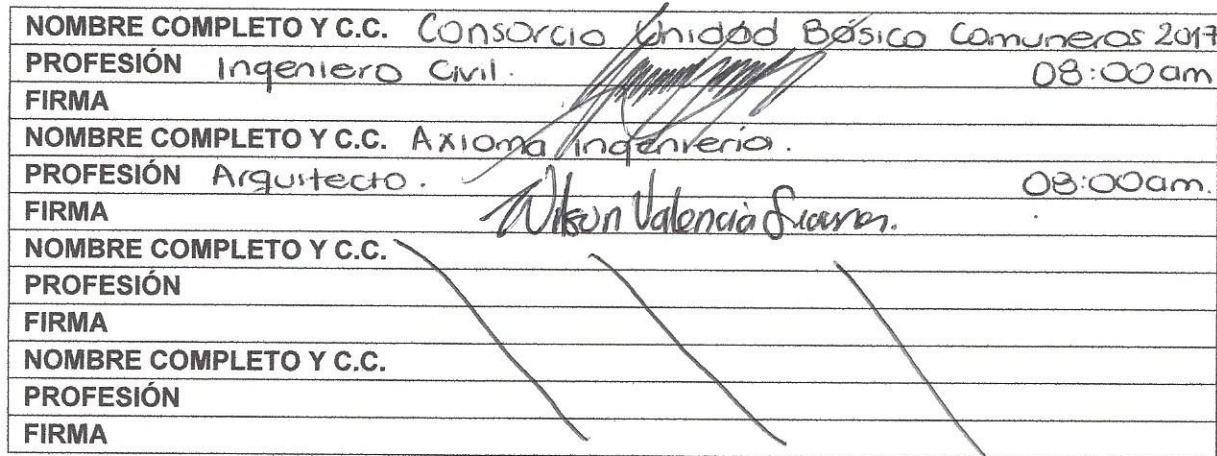 NOMBRE COMPLETO Y C.C. Consorcio Unidad Básica Comuneros 2017
PROFESIÓN Ingeniero Civil. 08:00am
FIRMA
NOMBRE COMPLETO Y C.C. Axioma ingenieria.
PROFESIÓN Arquitecto. 08:00am.
FIRMA Wilson Valencia
NOMBRE COMPLETO Y C.C.
PROFESIÓN
FIRMA
NOMBRE COMPLETO Y C.C.
PROFESIÓN
FIRMA